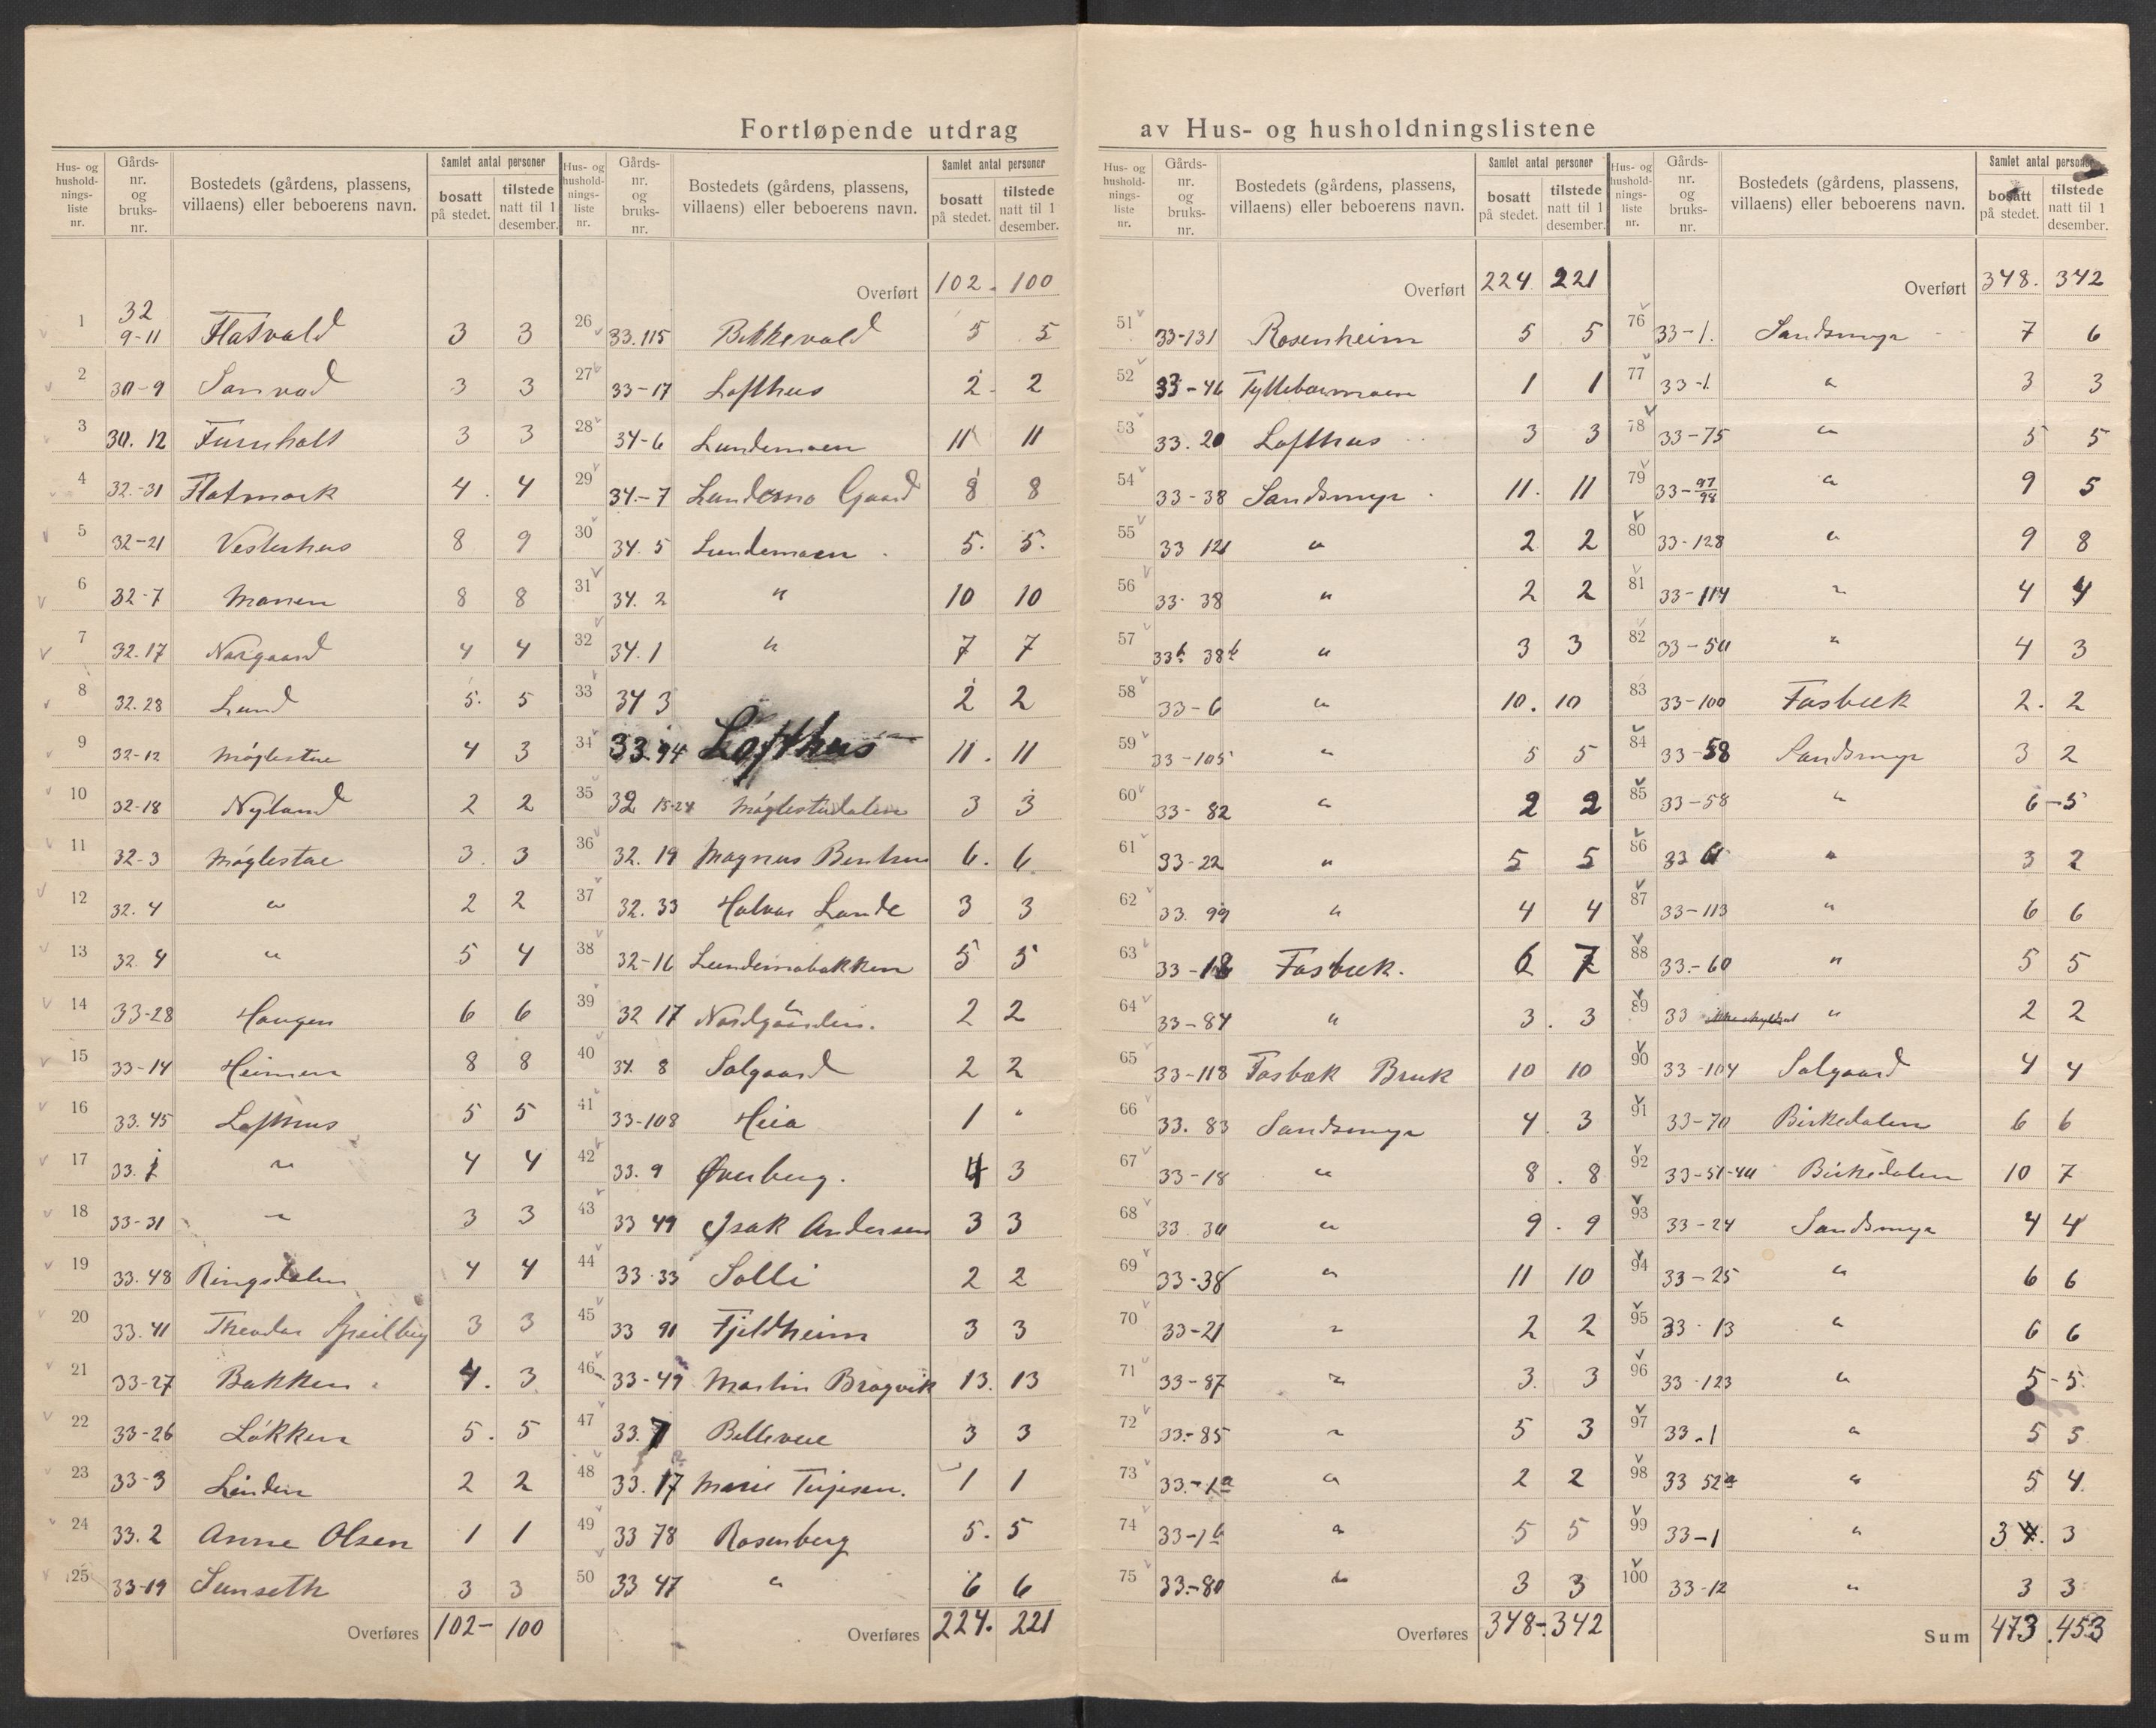 Fortløpende utdrag av Hus- og husholdningslistene
Hus- og husholdnings-liste nr. Gårds-nr. og bruks-nr. Bostedets (gårdens, plassens, villaens) eller beboerens navn. Samlet antal personer bosatt på stedet. tilstede natt til 1 desember.
1 32 9-11 Flatvald 3 3
2 30-9 Sanvad 3 3
3 30. 12 Furuholt 3 3
4 32.-31 Flatmark 4. 4
5 32-21 Vesterhus 8 9
6 32-7 Monen 8 8
7 32.17 Norgaard 4 4
8 32.28 Lund 5. 5
9 32-12 Møglestue 4 3
10 32-18 Nyland 2 2
11 32-3 Møglestue 3. 3
12 32.4 " 2 2
13 32.4 " 5 4
14 33-28 Haugen 6 6
15 33-14 Heimen 8 8
16 33.45 Lofthus 5 5
17 33. " 4 4
18 33-31 " 3 3
19 33.48 Ringsdalen 4 4
20 33.41 Theodor 3 3
21 33-27 Bakken 4. 3
22 33-26 Løkken 5. 5
23 33-3 Linden 2 2
24 33.2 Anne Olsen 1 1
25 33-19 Sunseth 3 3
Overføres 102- 100
Hus- og husholdnings-liste nr. Gårds-nr. og bruks-nr. Bostedets (gårdens, plassens, villaens) eller beboerens navn. Samlet antal personer bosatt på stedet. tilstede natt til 1 desember.
Overført 102. 100
26 33.115 Bekkevold 5 5
27 33-17 Lofthus 2. 2
28 34-6 Lundemoen 11 11
29 34.-7 Lundemo Gaard 8 8
30 34.5 Lundemoen 5. 5.
31 34.2 " 10 10
32 34.1 " 7 7
33 34 3 2 2
34 33.94 Lofthus 11. 11
35 32 15-24 Møglestudalen 3 3
36 32.19 Magnus 6. 6
37 32.33 Halvor Lunde 3 3
38 32-16 Lundemobakken 5 5
39 32 17 Nordgaarden. 2 2
40 34.8 Solgaard 2 2
41 33-108 Heia 1 "
42 33.9 Øverberg. 4 3
43 33 49 Isak Andersen 3 3
44 33-33 Solli 2 2
45 33 91 Fjeldheim 3 3
46 33-49 Martin Bragvik 13. 13
47 33.7 Bellevue 3 3
48 33.17 Marie Terjesen. 1 1
49 33 78 Rosenberg 5. 5
50 33 47 " 6 6
Overføres 224. 221
Hus- og husholdnings-liste nr. Gårds-nr. og bruks-nr. Bostedets (gårdens, plassens, villaens) eller beboerens navn. Samlet antal personer bosatt på stedet. tilstede natt til 1 desember.
Overført 224 221
51 33-131 Rosenheim 5 5
52 33-46 Tyttebærmoen 1 1
53 33.20 Lofthus 3 3
54 33-38 Sandsmyr 11. 11
55 33 121 " 2 2
56 33-38 " 2 2
57 33b 38b " 3 3
58 33-6 " 10. 10
59 33-105 " 5 5
60 33-82 " 2 2
61 33-22 " 5 5
62 33.99 " 4 4
63 33-18 Fosbæk. 6 7
64 33-84 " 3. 3
65 33-118 Fosbæk Bruk 10 10
66 33.83 Sandsmyr 4. 3
67 33-18 " 8. 8
68 33.30 " 9. 9
69 33-38 " 11 10
70 33-21 " 2 2
71 33-87 " 3. 3
72 33-85 " 5 3
73 33.-1a " 2 2
74 33-1b " 5 5
75 33.-80 " 3 3
Overføres 348-. 342
Hus- og husholdnings-liste nr. Gårds-nr. og bruks-nr. Bostedets (gårdens, plassens, villaens) eller beboerens navn. Samlet antal personer bosatt på stedet. tilstede natt til 1 desember.
Overført 348. 342
76 33-1. Sandsmyr 7 6
77 33-1 " 3 3
78 33-75 " 5 5
79 33-97/98 " 9 5
80 33-128 " 9 8
81 33-114 " 4 4
82 33-50 " 4 3
83 33-100 Fosbæk 2. 2
84 33-58 Sandsmyr 3 2
85 33-58 " 6-5
86 33 61 " 3 2
87 33-113 " 6 6
88 33.-60 " 5 5
89 33 " 2 2
90 33-104 Solgaard 4 4
91 33-70 Birkedalen 6 6
92 33-51-40 Birkedalen 10 7
93 33-24 Sandsmyr 4 4
94 33-25 " 6 6
95 33-13 " 6 6
96 33-123 " 5-5
97 33.1 " 5 5
98 33 52a " 5 4.
99 33-1 " 3 4. 3
100 33-12 " 3 3
Sum 473. 453